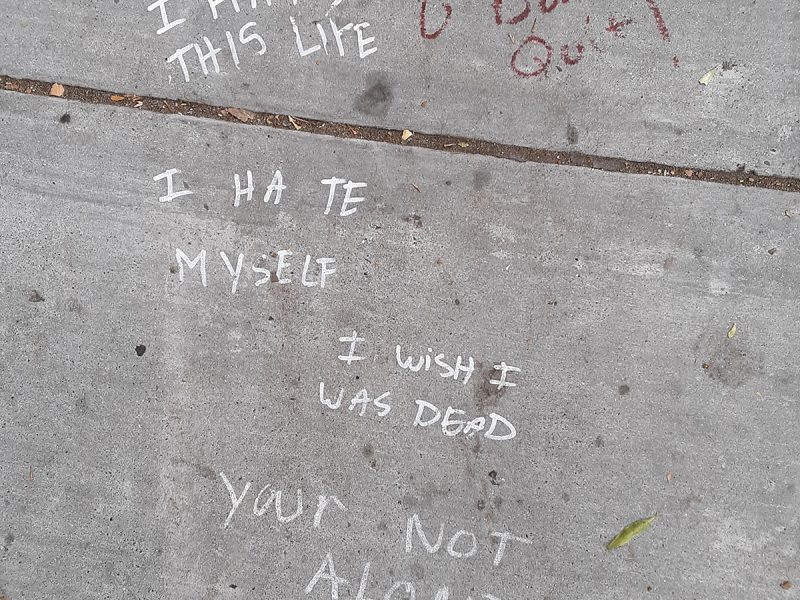 I
THIS LIFE
Quiet
I HATE
MYSELF
I WISH I
WAS DEAD
your NOT